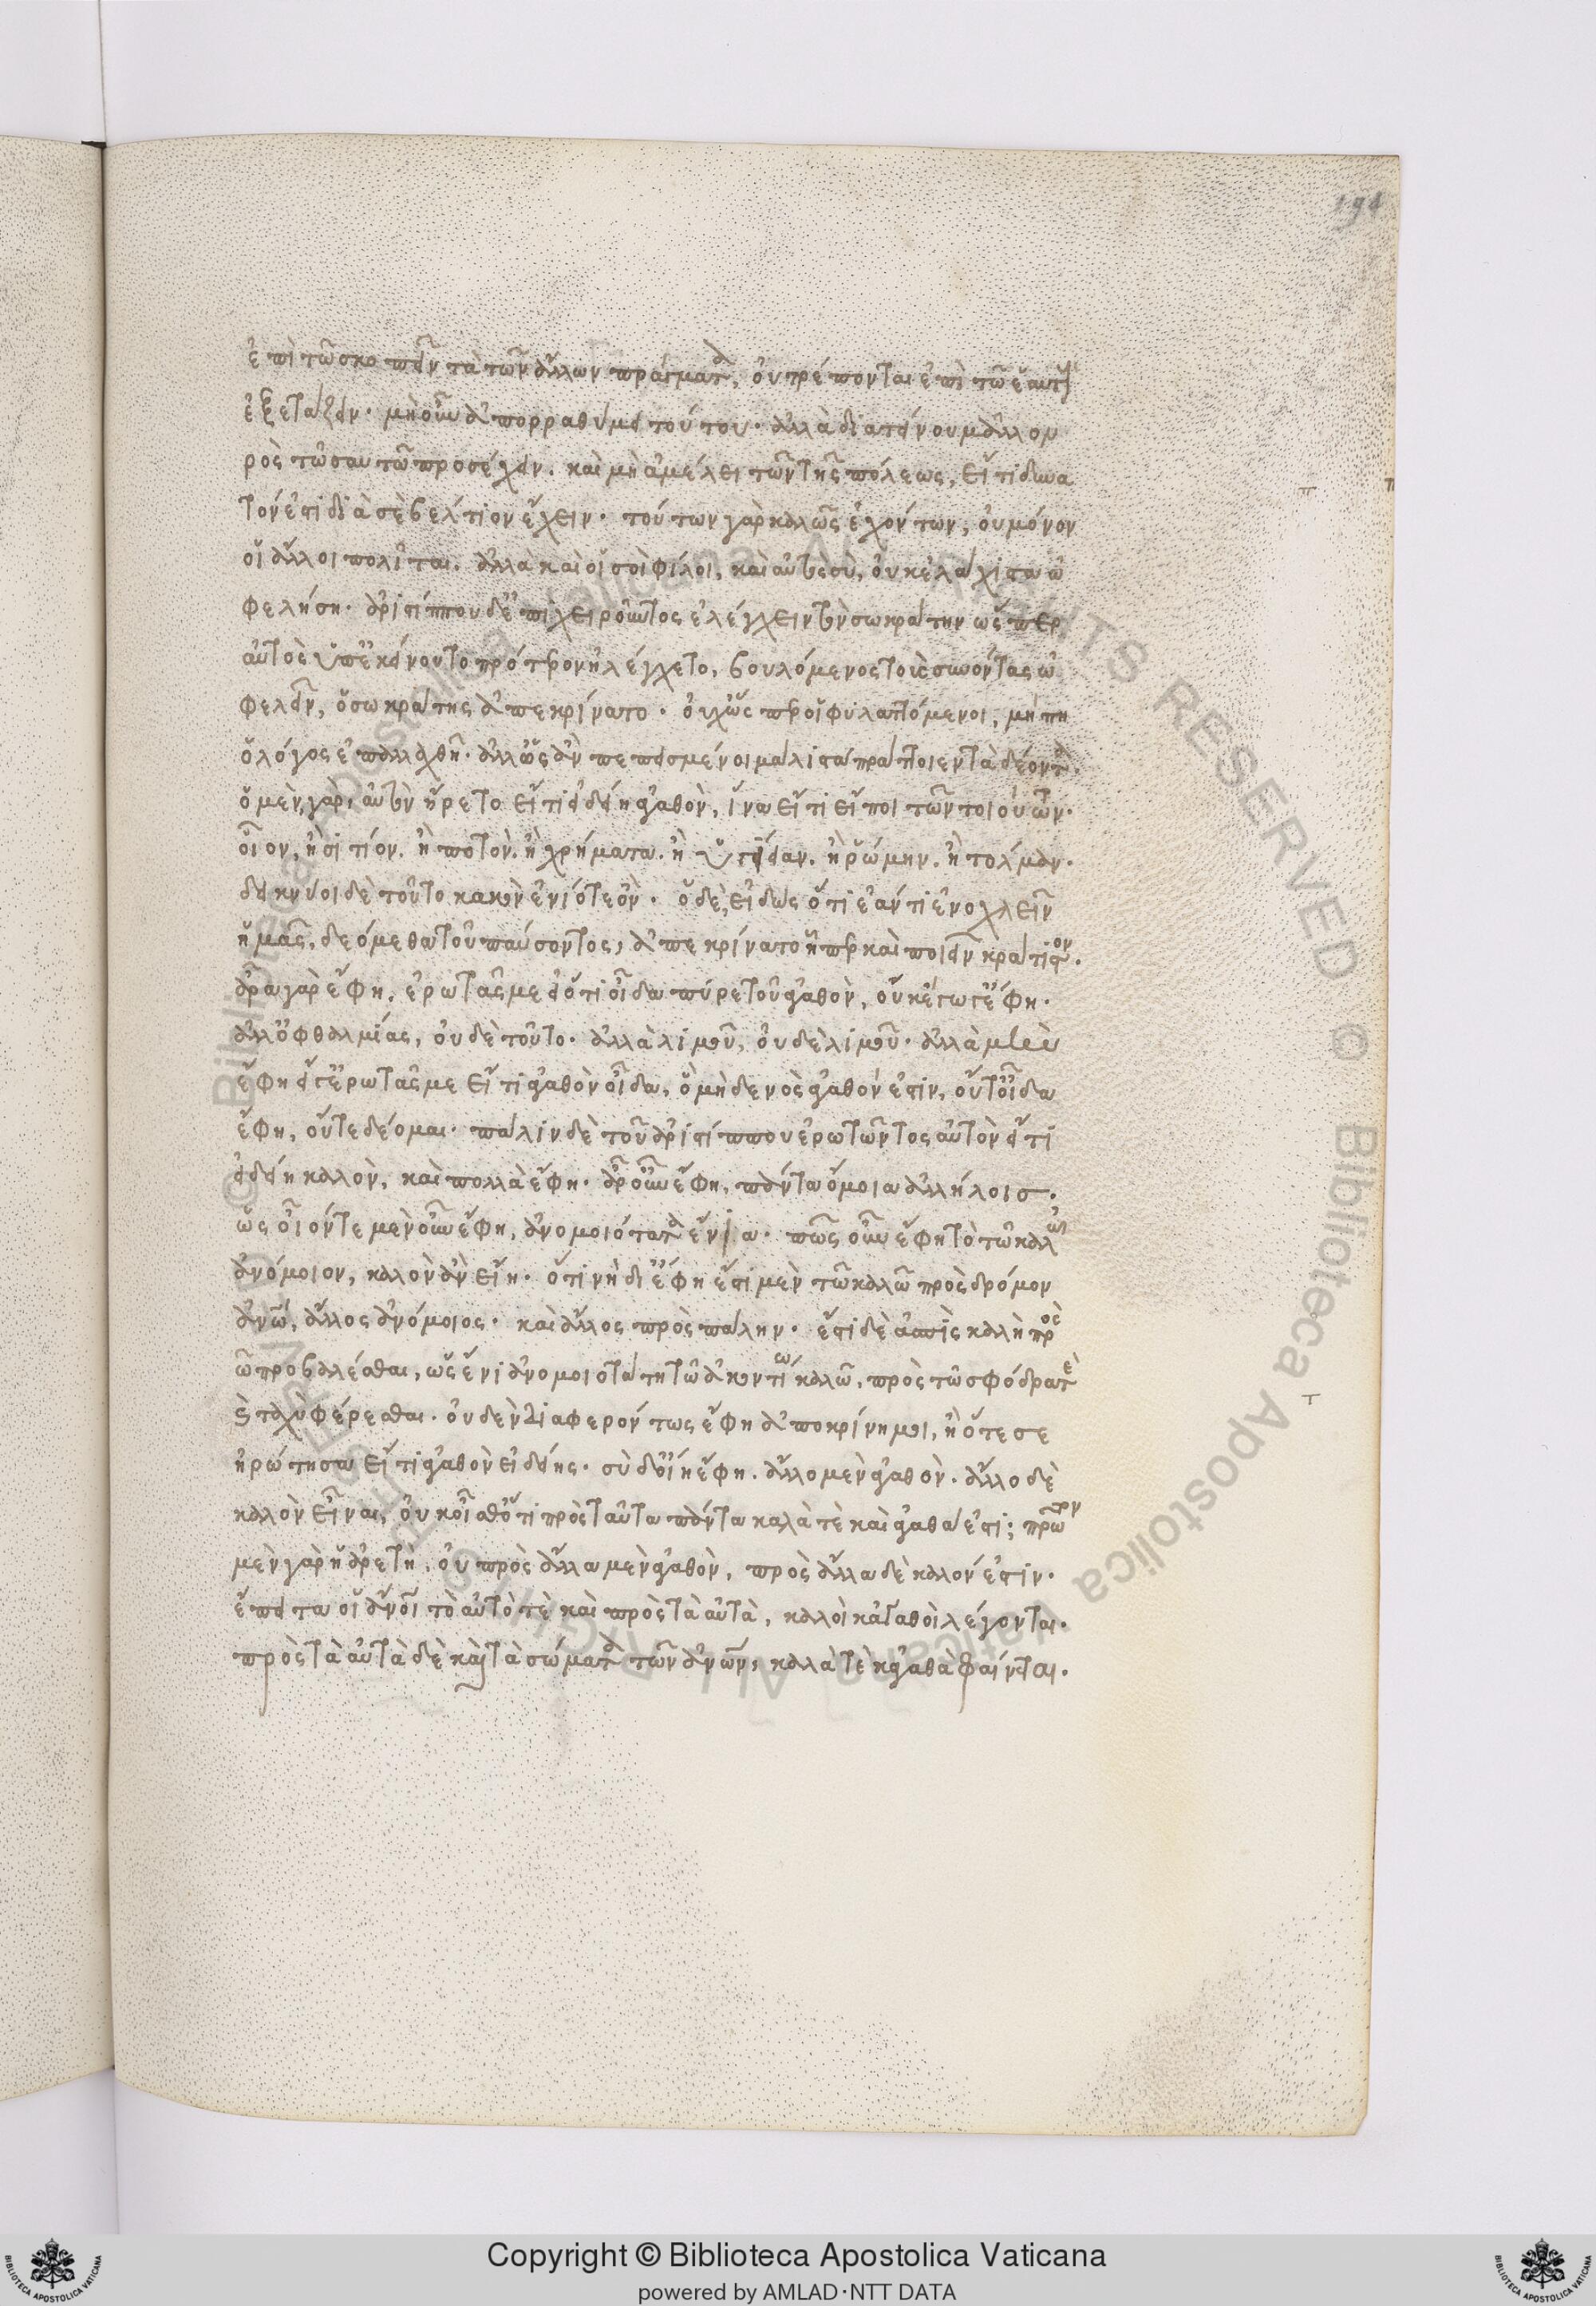 194
ἐπὶ τῶ σκοπεῖν τὰ τῶν ἄλλων πράγματα, οὐ τρέπονται ἐπὶ τῶ ἑαυτοὺς
ἐξετάζειν. μὴ οὖν ἀπορραθύμει τούτου. ἀλλὰ διατείνου μᾶλλον
ρὸς τῶ σαυτῶ προσέχειν. καὶ μὴ ἀμέλει τῶν τῆς πόλεως, εἴ τι δυνα
τόν ἐστι διὰ σὲ βελτιον ἔχειν. τούτων γὰρ καλῶς ἐχόντων, οὐ μόνον
οἱ ἄλλοι πολῖται. ἀλλὰ καὶ οἱ σοὶ φίλοι, καὶ αὐτὸς σὺ, οὐκ ἐλάχιστα ὠ
φελήση. ἀριστίππου δ' ἐπιχειροῦντος ἐλέγχειν τὸν σωκράτην ὥσπερ
αὐτὸς ὑπ' ἐκείνου τὸ πρότερον ἠλέγχετο, βουλόμενος τοὺς συνόντας ὠ
φελεῖν, ὁ σωκράτης ἀπεκρίνατο. οὐχ ὥσπερ οἱ φυλαττόμενοι, μή πη
ὁ λόγος ἐπαλλαχθῆ. ἀλλ' ὡς ἂν πεπεισμένοι μάλιστα πράττοιεν τὰ δέοντα.
ὁ μὲν γὰρ, αὐτὸν ἤρετο εἴ τι εἰδείη ἀγαθὸν, ἵνα εἴ τι εἴποι τῶν τοιούτων.
οἷον, ἢ σιτίον. ἢ ποτὸν. ἢ χρήματα. ἢ ὑγίειαν. ἢ ῥώμην. ἢ τόλμαν.
δεικνύοι δὲ τοῦτο κακὸν ἐνίοτε ὂν. ὁ δὲ, εἰδὼς ὅτι ἐάν τι ἐνοχλεῖν
ἡμᾶς, δεόμεθα τοῦ παύσοντος, ἀπεκρίνατο ἧπερ καὶ ποιεῖν κράτιστον.
ἆρα γὰρ ἔφη, ἐρωτᾶς με εἰ ὅτι οἶδα πυρετοῦ ἀγαθὸν, οὐκ ἔγωγ' ἔφη.
ἀλλ' ὀφθαλμίας, οὐδὲ τοῦτο. ἀλλὰ λιμοῦ, οὐδὲ λιμοῦ. ἀλλὰ μὴν
ἔφη εἴ γ' ἐρωτᾶς με εἴ τι ἀγαθὸν οἶδα, ὃ μηδενὸς ἀγαθόν ἐστιν, οὔτ' οἶδα
ἔφη, οὔτε δέομαι. πάλιν δὲ τοῦ ἀριστίππου ἐρωτῶντος αὐτὸν εἴ τι
εἰδείη καλὸν, καὶ πολλὰ ἔφη. ἆρ' οὖν ἔφη, πάντα ὅμοια ἀλλήλοις.
ὡς οἷόν τε μὲν οὖν ἔφη, ἀνομοιότατα ἔνια. πῶς οὖν ἔφη τὸ τῶ καλῶ
ἀνόμοιον, καλὸν ἂν εἴη. ὅτι νὴ δί' ἔφη ἔστι μὲν τῶ καλῶ πρὸς δρόμον
ἀνθρώπω, ἄλλος ἀνόμοιος. καὶ ἄλλος πρὸς πάλην. ἔστι δὲ ἀσπὶς καλὴ πρὸς
ὦ προβαλέσθαι, ὡς ἔνι ἀνομοιοτάτη τῶ ἀκοντίω καλῶ, πρὸς τῶ σφόδρα τὲ
καὶ ταχὺ φέρεσθαι. οὐδὲν διαφερόντως ἔφη ἀποκρίνη μοι, ἢ ὅτε σε
ἠρώτησα εἴ τι ἀγαθὸν εἰδείης. σὺ δ' οἴη ἔφη. ἄλλο μὲν ἀγαθὸν. ἄλλο δὲ
καλὸν εἶναι, οὐκ οἶσθ' ὅτι πρὸς ταῦτα πάντα καλά τε καὶ ἀγαθά ἐστι; πρῶτον
μὲν γὰρ ἡ ἀρετὴ, οὐ πρὸς ἄλλα μὲν ἀγαθὸν, πρὸς ἄλλα δὲ καλόν ἐστιν.
ἔπειτα οἱ ἄνθρωποι τὸ αὐτό τὲ καὶ πρὸς τὰ αὐτὰ, καλοὶ κἀγαθοὶ λέγονται.
πρὸς τὰ αὐτὰ δὲ καὶ τὰ σώματα τῶν ἀνθρώπων, καλά τὲ κἀγαθὰ φαίνεται.
© Biblioteca Apostolica Vaticana ALL RIGHTS RESERVED
Copyright © Biblioteca Apostolica Vaticana
powered by AMLAD·NTT DATA
BIBLIOTECA APOSTOLICA VATICANA
BIBLIOTECA APOSTOLICA VATICANA